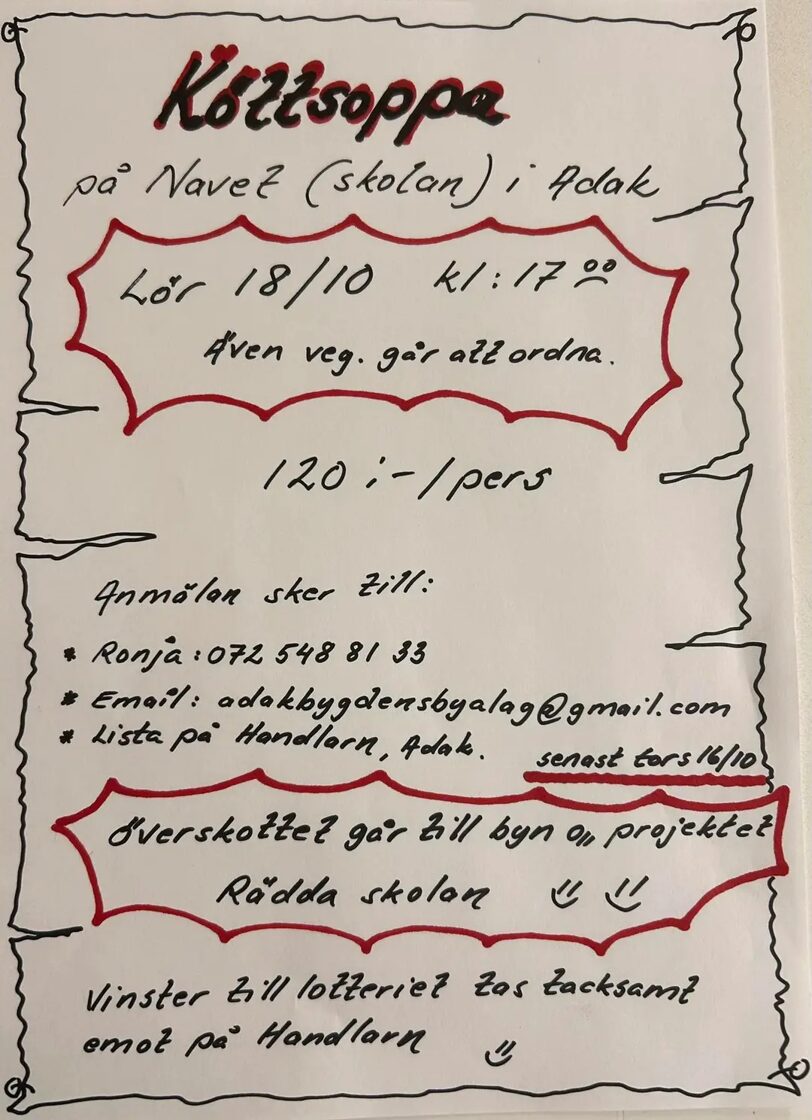 Köttsoppa
på Navet (skolan) i Adak
Lör 18/10 kl: 17 00
Även veg. går att ordna.
120 :-/pers
Anmälan sker till:
* Ronja: 072 548 81 33
* Email: adakbygdensbyalag@gmail.com
* Lista på Handlarn, Adak.
senast tors 16/10
Överskottet går till byn o,, projektet
Rädda skolan
Vinster till lotteriet tas tacksamt
emot på Handlarn